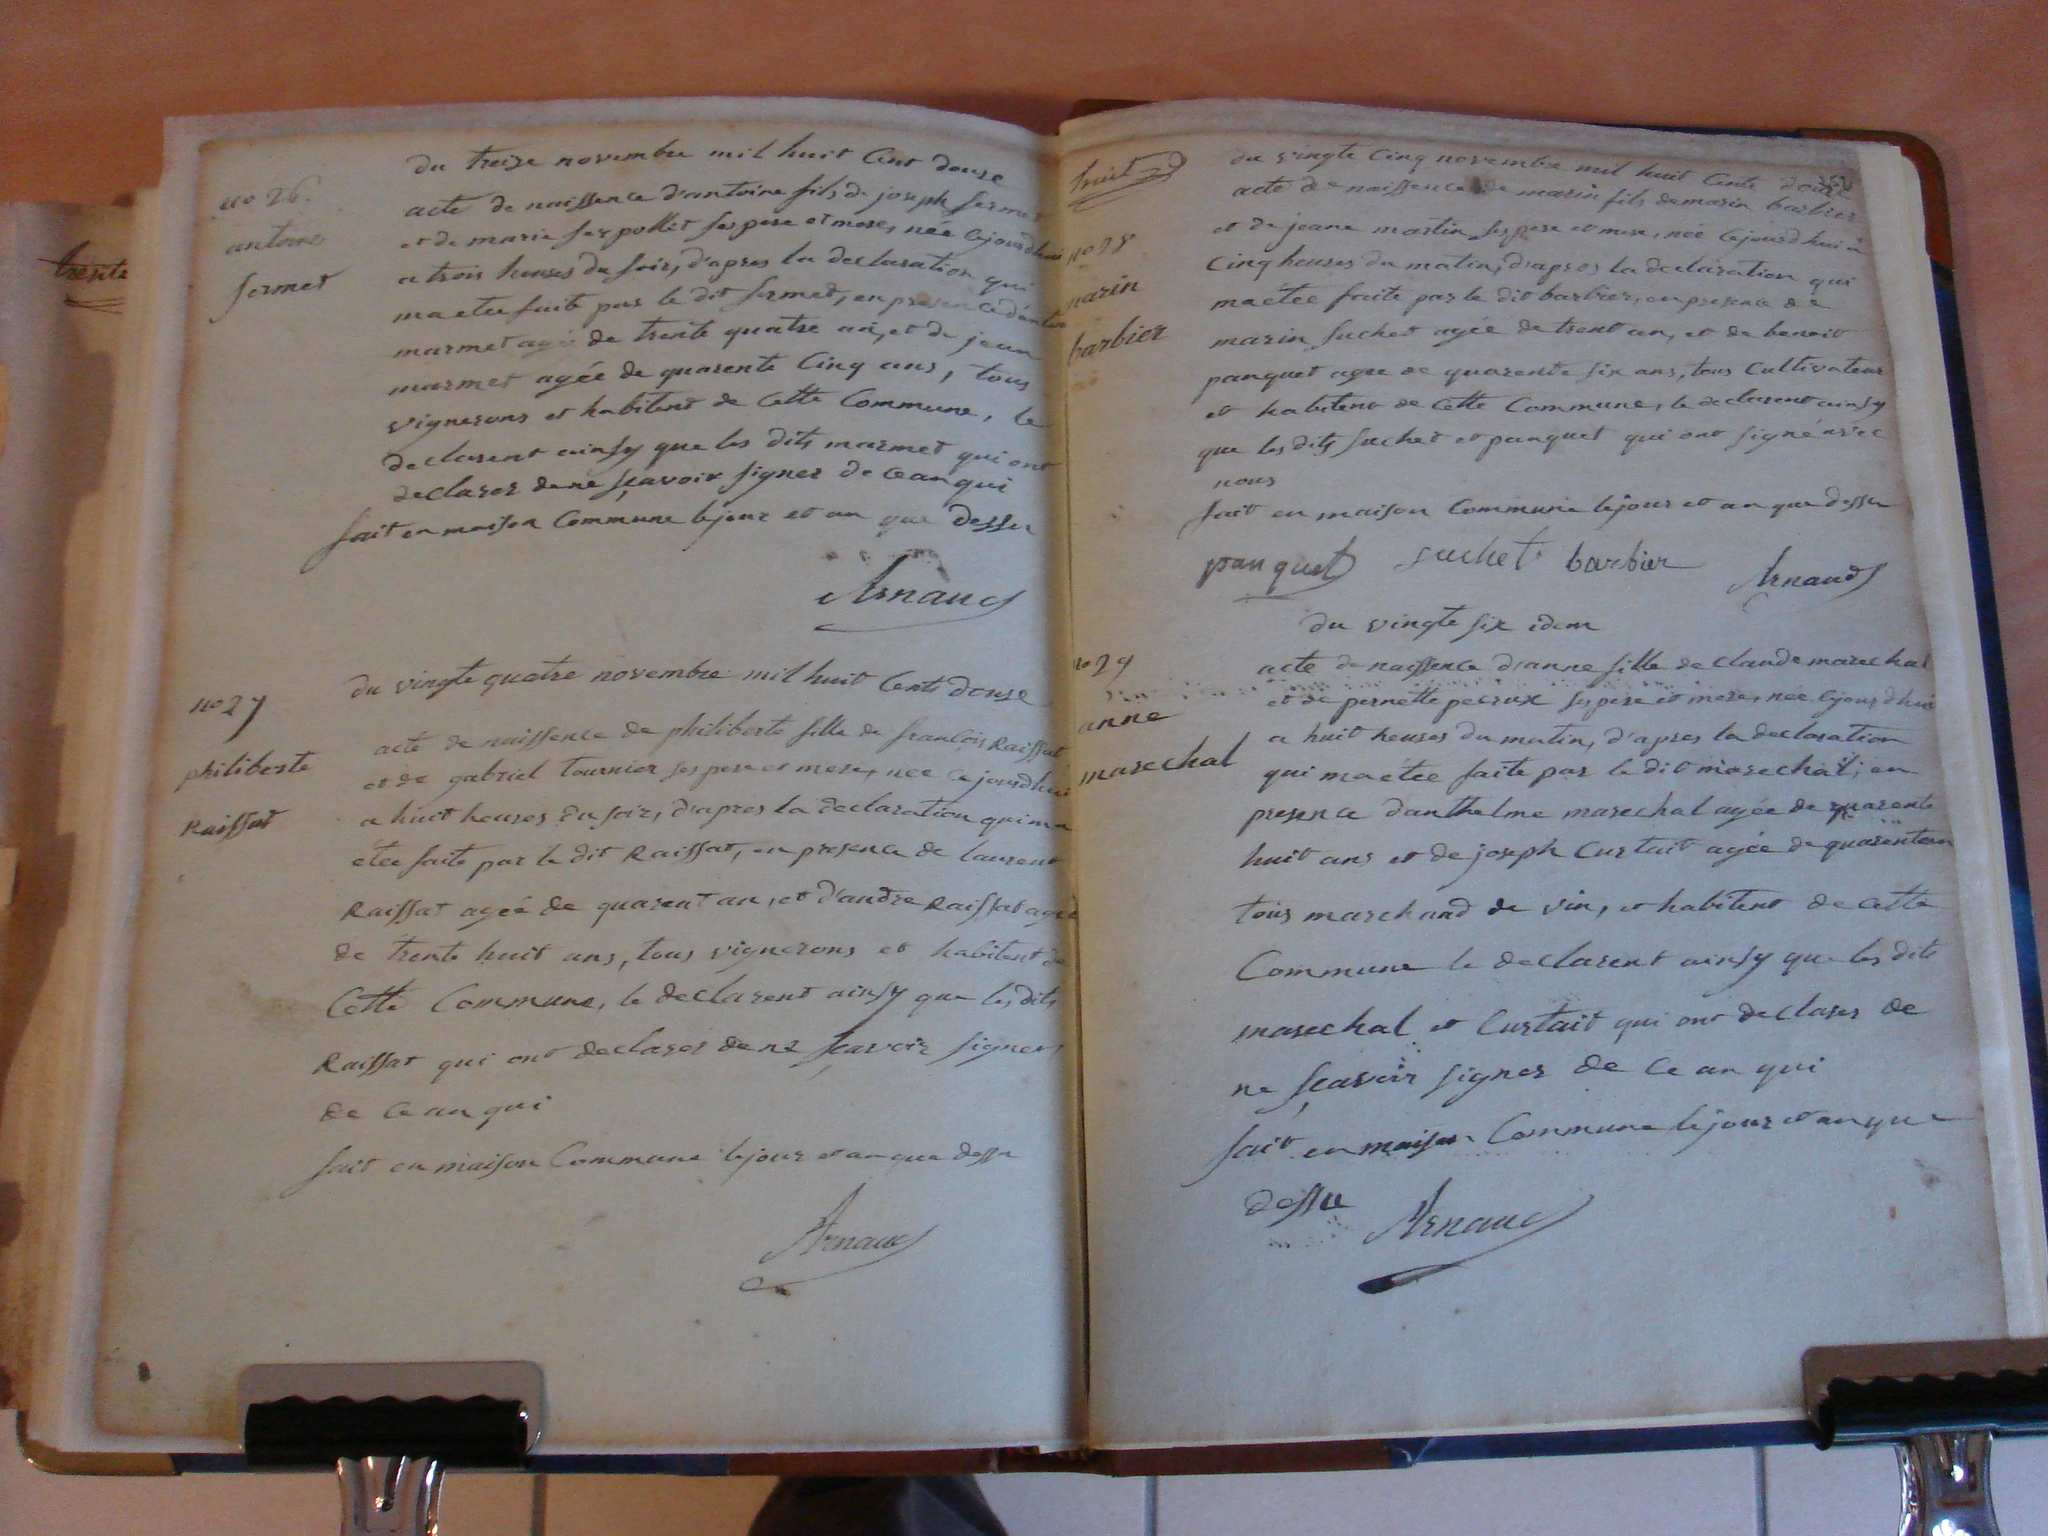 trente
no 26.
antoine
fermet
du treize novembre mil huit Cent douse
acte de naissence d'antoine fils de joseph fermet
et de marie serpollet ses pere et mere, née Cejourdhui
a trois heures du soir, d'apres la declaration qui
ma etee faite par le dit fermet, en presence
marmet agée de trente quatre an, et de jean
marmet agée de quarente Cinq ans, tous
vignerons et habitent de Cette Commune, le
declarent ainsy que les dits marmet qui ont
declarer de ne sçavoir signer de Ce an qui
fait en maison Commune le jour et an que dessu
Arnaud
no 27
philiberte
Raissat
du vingte quatre novembre mil huit Cents douse
acte de naissence de philiberte fille de francois Raissat
et de gabriel tournier ses pere et mere, née Ce jourdhui
a huit heures du soir, d'apres la declaration qui ma
etee faite par le dit Raissat, en presence de laurent
Raissat agée de quarent an, et d'andre Raissat agée
de trente huit ans, tous vignerons et habitent de
Cette Commune, le declarent ainsy que les dits
Raissat qui ont declarer de ne sçavoir signer,
de Ce an qui
fait en maison Commune le jour et an que dessu
Arnaud
huit
no 28
marin
barbier
du vingte Cinq novembre mil huit Cents douse
acte de naissence de marin fils de marin barbier
et de jeane martin ses pere et mere, née Cejourdhui a
Cinq heures du matin, d'apres la declaration qui
ma étee faite par le dit barbier, en presence de
marin suchet agée de trent an, et de benoit
panquet agée de quarente six ans, tous Cultivateur
et habitent de Cette Commune, le declarent ainsy
que les dits suchet et panquet qui ont signé avec
nous
fait en maison Commune le jour et an que dessu
panquet suchet barbier Arnaud
du vingte six idem
no 29
anne
marechal
acte de naissence d'anne fille de claude marechal
et de pernette peroux ses pere et mere, née Cejourdhui
a huit heures du matin, d'apres la declaration
qui ma étee faite par le dit marechal, en
presence d'anthelme marechal agée de quarente
huit ans et de joseph Curtait agée de quarente an
tous marchand de vin, et habitent de Cette
Commune le declarent ainsy que les dits
marechal et Curtait qui ont declarer de
ne sçavoir signer de Ce an qui
fait en maison Commune le jour et an que
dessu Arnaud